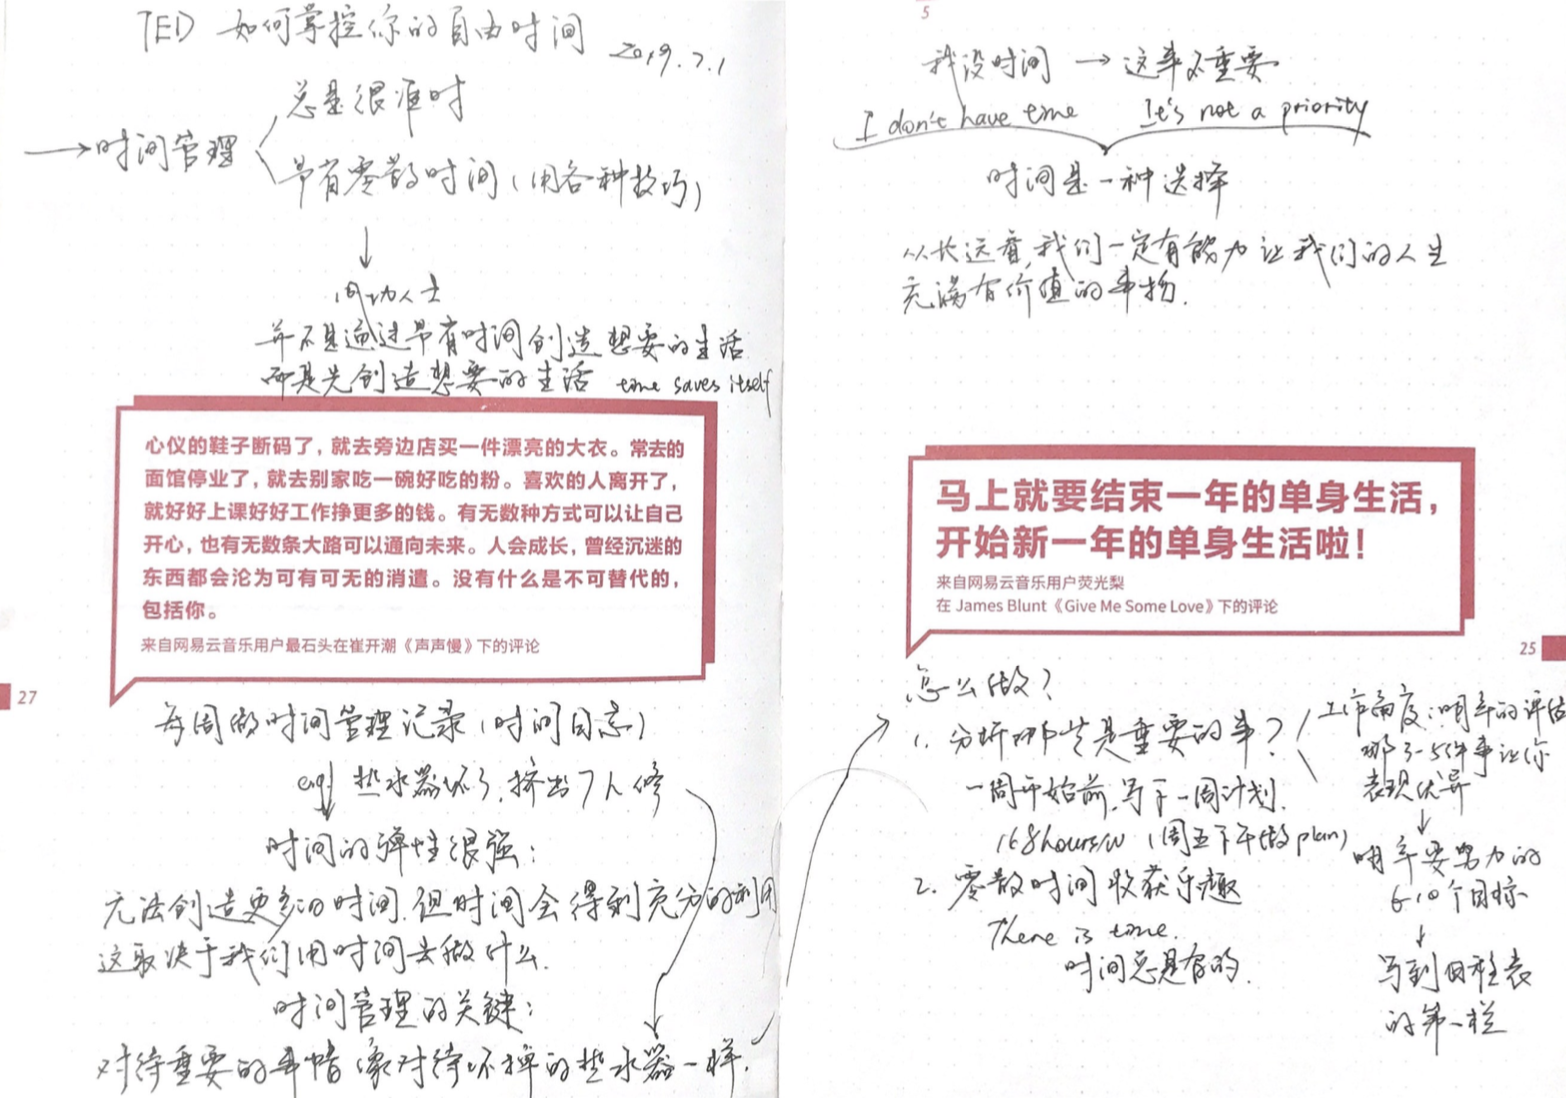 TED 如何掌控你的自由时间 2019.7.1
→时间管理
总是很准时
节省零散时间(用各种技巧)
↓
成功人士
并不是通过节省时间创造想要的生活
而是先创造想要的生活 time saves itself
心仪的鞋子断码了，就去旁边店买一件漂亮的大衣。常去的
面馆停业了，就去别家吃一碗好吃的粉。喜欢的人离开了，
就好好上课好好工作挣更多的钱。有无数种方式可以让自己
开心，也有无数条大路可以通向未来。人会成长，曾经沉迷的
东西都会沦为可有可无的消遣。没有什么是不可替代的，
包括你。
来自网易云音乐用户最石头在崔开潮《声声慢》下的评论
27
每周做时间管理记录(时间日志)
eg 热水器坏了,挤出7h修
时间的弹性很强:
无法创造更多的时间.但时间会得到充分的利用
这取决于我们用时间去做什么.
时间管理的关键:
对待重要的事情像对待坏掉的热水器一样.
5
我没时间 → 这事不重要
I don't have time It's not a priority
时间是一种选择
从长远看,我们一定有能力让我们的人生
充满有价值的事物.
马上就要结束一年的单身生活，
开始新一年的单身生活啦！
来自网易云音乐用户荧光梨
在 James Blunt《Give Me Some Love》下的评论
25
怎么做?
1. 分析哪些是重要的事?
一周开始前,写下一周计划.
168hours/w (周五下午做plan)
2. 零散时间收获乐趣
There is time.
时间总是有的.
工作角度:明年的评估
哪3-5件事让你
表现优异
↓
明年要努力的
6-10个目标
↓
写到日程表
的第一栏